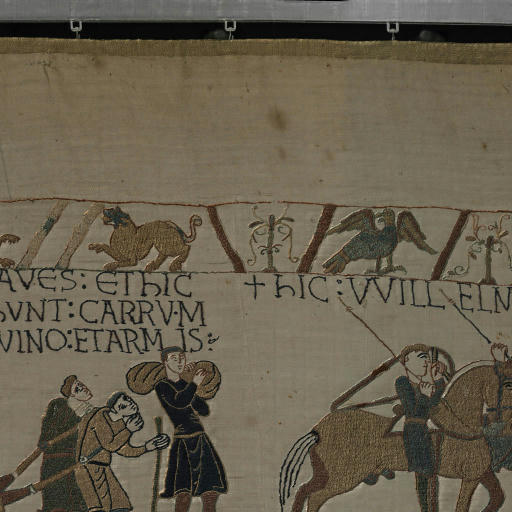 AVES: ET hIC
hVNT: CARRVM
VINO: ET ARMIS:
+ hIC: VVILLELM